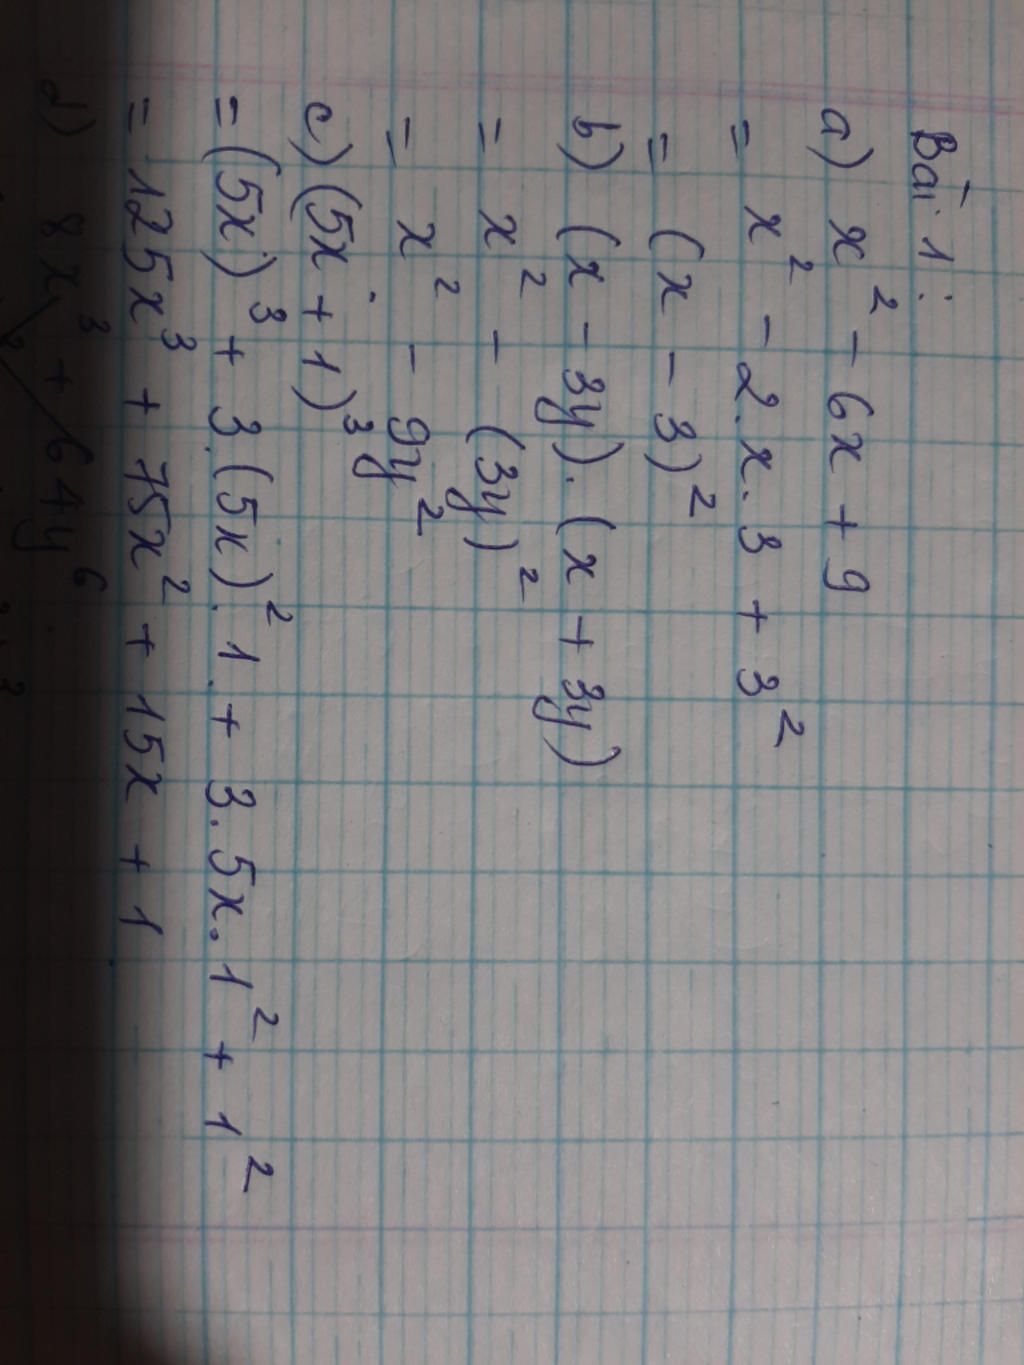 Bài 1:
a) x² - 6x + 9
= x² - 2.x.3 + 3²
= (x - 3)²
b) (x - 3y).(x + 3y)
= x² - (3y)²
= x² - 9y²
c) (5x + 1)³
= (5x)³ + 3.(5x)².1 + 3.5x.1² + 1²
= 125x³ + 75x² + 15x + 1
d) 8x³ + 64y⁶